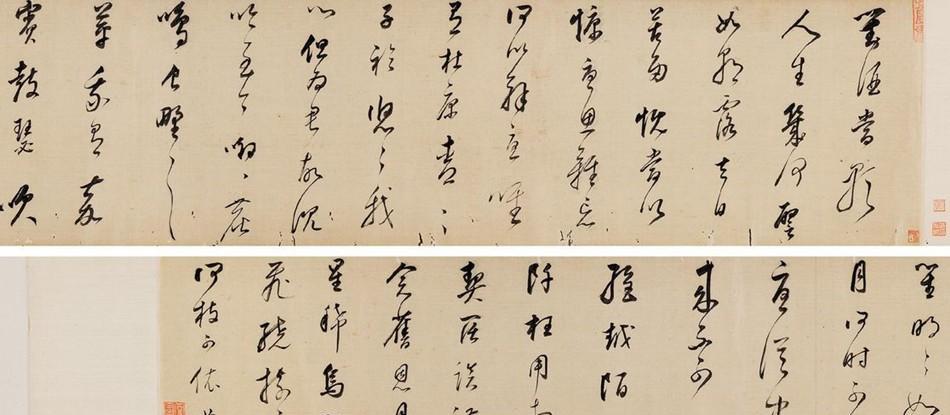 對酒當歌
人生幾何譬
如朝露去日
苦多慨當以
慷憂思難忘
何以解憂唯
有杜康青〻
子衿悠〻我
心但為君故沉
吟至今呦〻鹿
鳴食野之
苹我有嘉
賓鼓瑟吹
笙明〻如
月何時可
憂從中
來不可
絕越陌
阡枉用相
契闊談
念舊恩月
星稀烏
飛繞樹
何枝可依